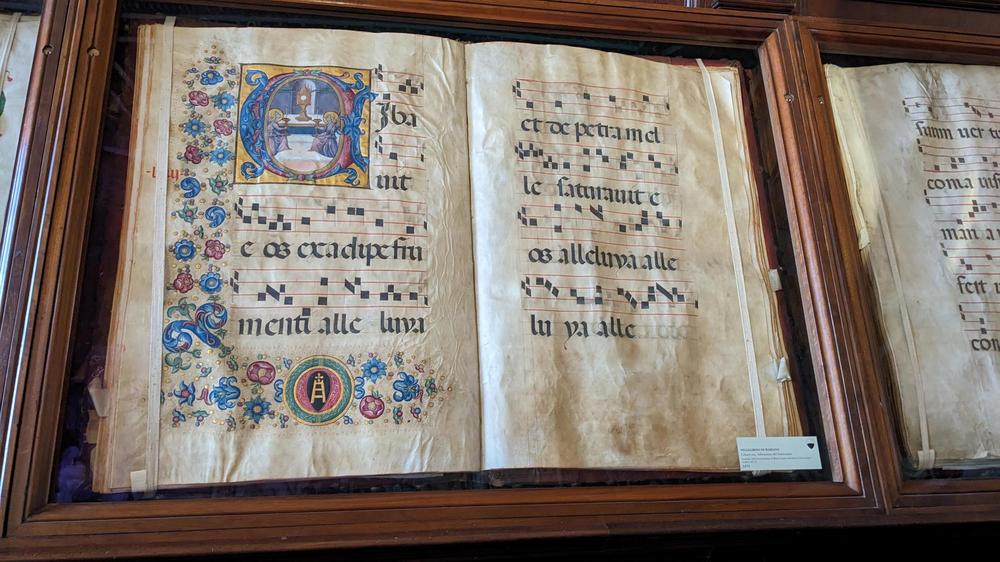 Ciba
uit
e os exadipe fru
menti alle luya
et de petra mel
le saturauit e
os alleluya alle
lu ya alle
PELLEGRINO DI MARIANO
coma
man a
fert
con